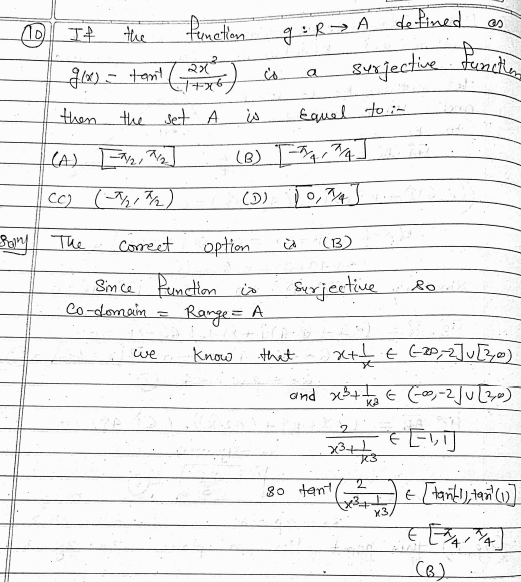 (10) If the function g : R → A defined as
g(x) = tan⁻¹ (2x³/1+x⁶) is a surjective function
then the set A is equal to :-
(A) [-π/2, π/2] (B) [-π/4, π/4]
(C) (-π/2, π/2) (D) [0, π/4]
Solⁿ The correct option is (B)
Since function is surjective so
Co-domain = Range = A
we know that x+1/x ∈ (-∞,-2]∪[2,∞)
and x³+1/x³ ∈ (-∞,-2]∪[2,∞)
2/(x³+1/x³) ∈ [-1,1]
so tan⁻¹ (2/(x³+1/x³)) ∈ [tan⁻¹(-1), tan⁻¹(1)]
∈ [-π/4, π/4]
(B)